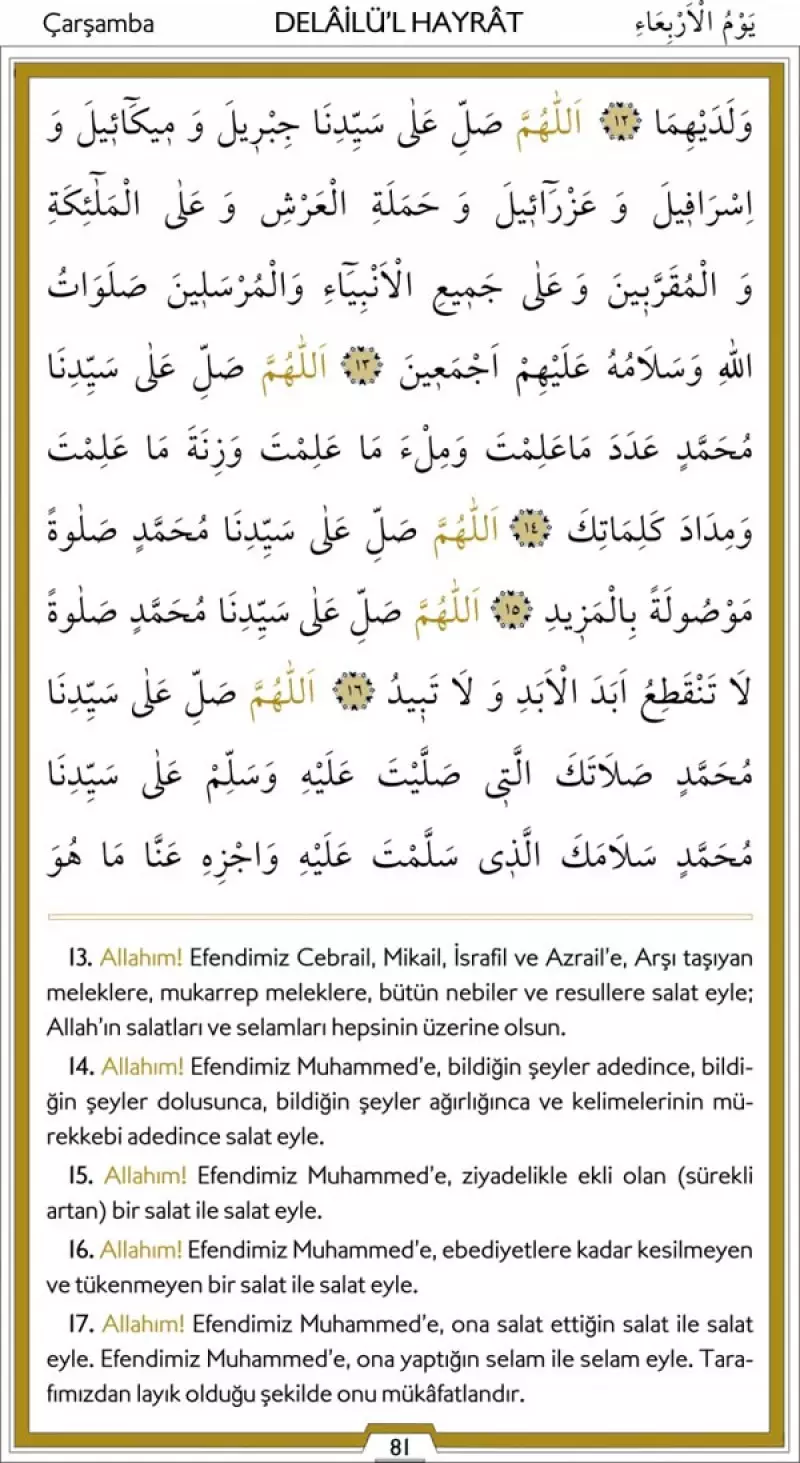 Çarşamba DELÂİLÜ’L HAYRÂT يَوْمُ الْاَرْبِعَاءِ
وَلَدَيْهِمَا ١٢ اَللّٰهُمَّ صَلِّ عَلٰى سَيِّدِنَا جِبْرٖيلَ وَ مٖيكَٓائٖيلَ وَ
اِسْرَافٖيلَ وَ عَزْرَٓائٖيلَ وَ حَمَلَةِ الْعَرْشِ وَ عَلٰى الْمَلٰٓئِكَةِ
وَ الْمُقَرَّبٖينَ وَ عَلٰى جَمٖيعِ الْاَنْبِيَٓاءِ وَالْمُرْسَلٖينَ صَلَوَاتُ
اللّٰهِ وَسَلَامُهُ عَلَيْهِمْ اَجْمَعٖينَ ١٣ اَللّٰهُمَّ صَلِّ عَلٰى سَيِّدِنَا
مُحَمَّدٍ عَدَدَ مَاعَلِمْتَ وَمِلْءَ مَا عَلِمْتَ وَزِنَةَ مَا عَلِمْتَ
وَمِدَادَ كَلِمَاتِكَ ١٤ اَللّٰهُمَّ صَلِّ عَلٰى سَيِّدِنَا مُحَمَّدٍ صَلٰوةً
مَوْصُولَةً بِالْمَزٖيدِ ١٥ اَللّٰهُمَّ صَلِّ عَلٰى سَيِّدِنَا مُحَمَّدٍ صَلٰوةً
لَا تَنْقَطِعُ اَبَدَ الْاَبَدِ وَ لَا تَبٖيدُ ١٦ اَللّٰهُمَّ صَلِّ عَلٰى سَيِّدِنَا
مُحَمَّدٍ صَلَاتَكَ الَّتٖى صَلَّيْتَ عَلَيْهِ وَسَلِّمْ عَلٰى سَيِّدِنَا
مُحَمَّدٍ سَلَامَكَ الَّذٖى سَلَّمْتَ عَلَيْهِ وَاجْزِهِ عَنَّا مَا هُوَ
13. Allahım! Efendimiz Cebrail, Mikail, İsrafil ve Azrail’e, Arşı taşıyan
meleklere, mukarrep meleklere, bütün nebiler ve resullere salat eyle;
Allah’ın salatları ve selamları hepsinin üzerine olsun.
14. Allahım! Efendimiz Muhammed’e, bildiğin şeyler adedince, bildi-
ğin şeyler dolusunca, bildiğin şeyler ağırlığınca ve kelimelerinin mü-
rekkebi adedince salat eyle.
15. Allahım! Efendimiz Muhammed’e, ziyadelikle ekli olan (sürekli
artan) bir salat ile salat eyle.
16. Allahım! Efendimiz Muhammed’e, ebediyetlere kadar kesilmeyen
ve tükenmeyen bir salat ile salat eyle.
17. Allahım! Efendimiz Muhammed’e, ona salat ettiğin salat ile salat
eyle. Efendimiz Muhammed’e, ona yaptığın selam ile selam eyle. Tara-
fımızdan layık olduğu şekilde onu mükâfatlandır.
81